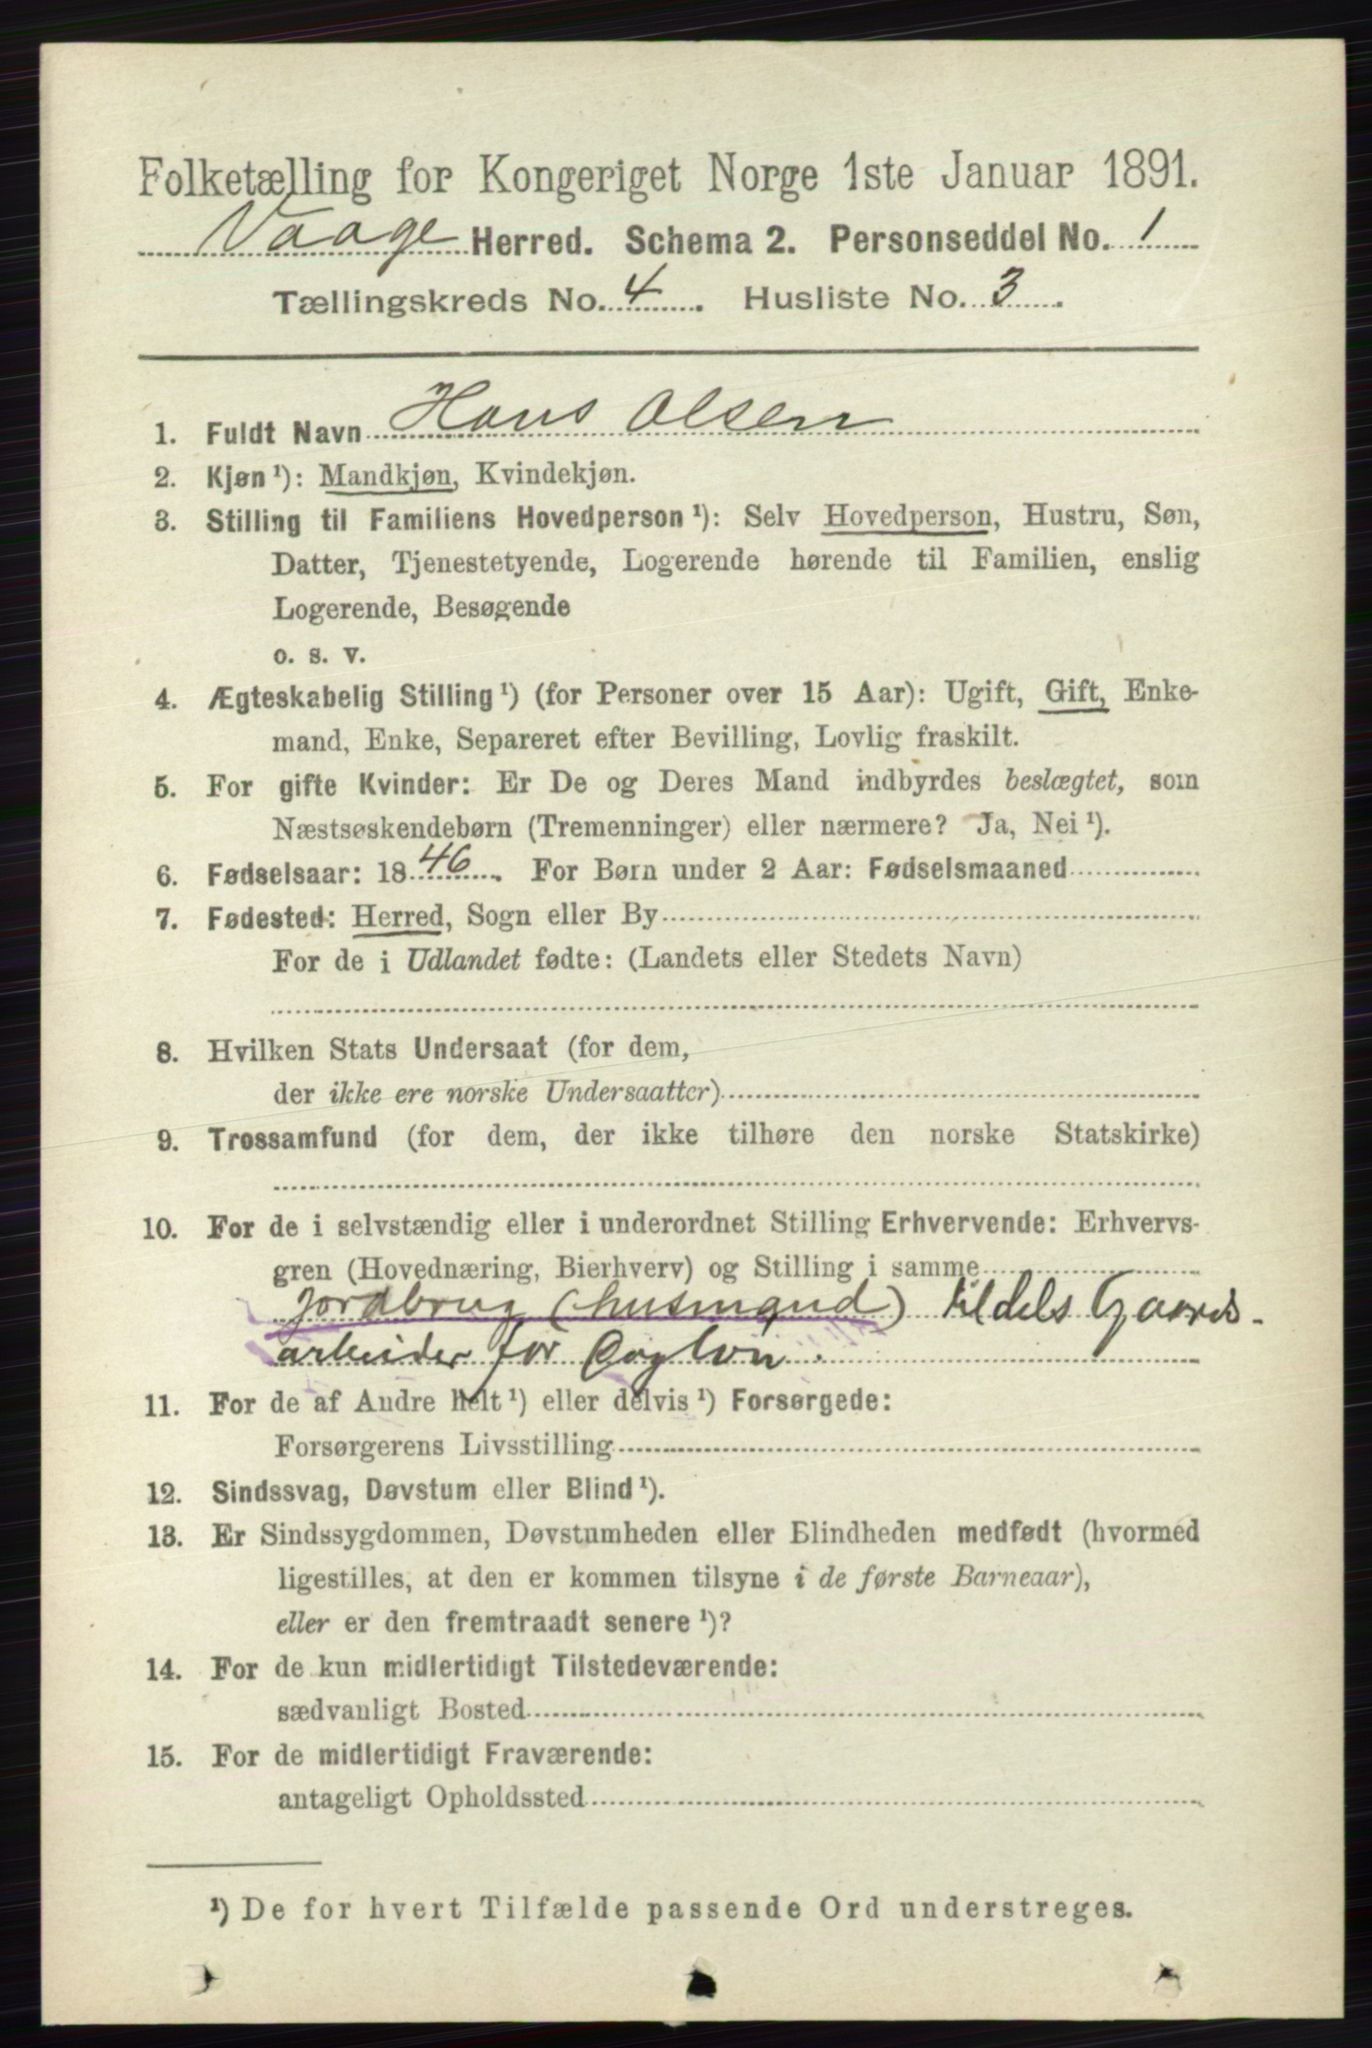 Folketælling for Kongeriget Norge 1ste Januar 1891.
Vaage Herred. Schema 2. Personseddel No. 1
Tællingskreds No. 4. Husliste No. 3.
1. Fuldt Navn Hans Olsen
2. Kjøn¹): Mandkjøn, Kvindekjøn.
3. Stilling til Familiens Hovedperson¹): Selv Hovedperson, Hustru, Søn,
Datter, Tjenestetyende, Logerende hørende til Familien, enslig
Logerende, Besøgende
o. s. v.
4. Ægteskabelig Stilling¹) (for Personer over 15 Aar): Ugift, Gift, Enke-
mand, Enke, Separeret efter Bevilling, Lovlig fraskilt.
5. For gifte Kvinder: Er De og Deres Mand indbyrdes beslægtet, som
Næstsøskendebørn (Tremenninger) eller nærmere? Ja, Nei¹).
6. Fødselsaar: 1846. For Børn under 2 Aar: Fødselsmaaned
7. Fødested: Herred, Sogn eller By
For de i Udlandet fødte: (Landets eller Stedets Navn)
8. Hvilken Stats Undersaat (for dem,
der ikke ere norske Undersaatter)
9. Trossamfund (for dem, der ikke tilhøre den norske Statskirke)
10. For de i selvstændig eller i underordnet Stilling Erhvervende: Erhvervs-
gren (Hovednæring, Bierhverv) og Stilling i samme
Jordbrug (husmand) tildels Gaards-
arbeider for Dagløn.
11. For de af Andre helt¹) eller delvis¹) Forsørgede:
Forsørgerens Livsstilling
12. Sindssvag, Døvstum eller Blind¹).
13. Er Sindssygdommen, Døvstumheden eller Blindheden medfødt (hvormed
ligestilles, at den er kommen tilsyne i de første Barneaar),
eller er den fremtraadt senere¹)?
14. For de kun midlertidigt Tilstedeværende:
sædvanligt Bosted
15. For de midlertidigt Fraværende:
antageligt Opholdssted
¹) De for hvert Tilfælde passende Ord understreges.